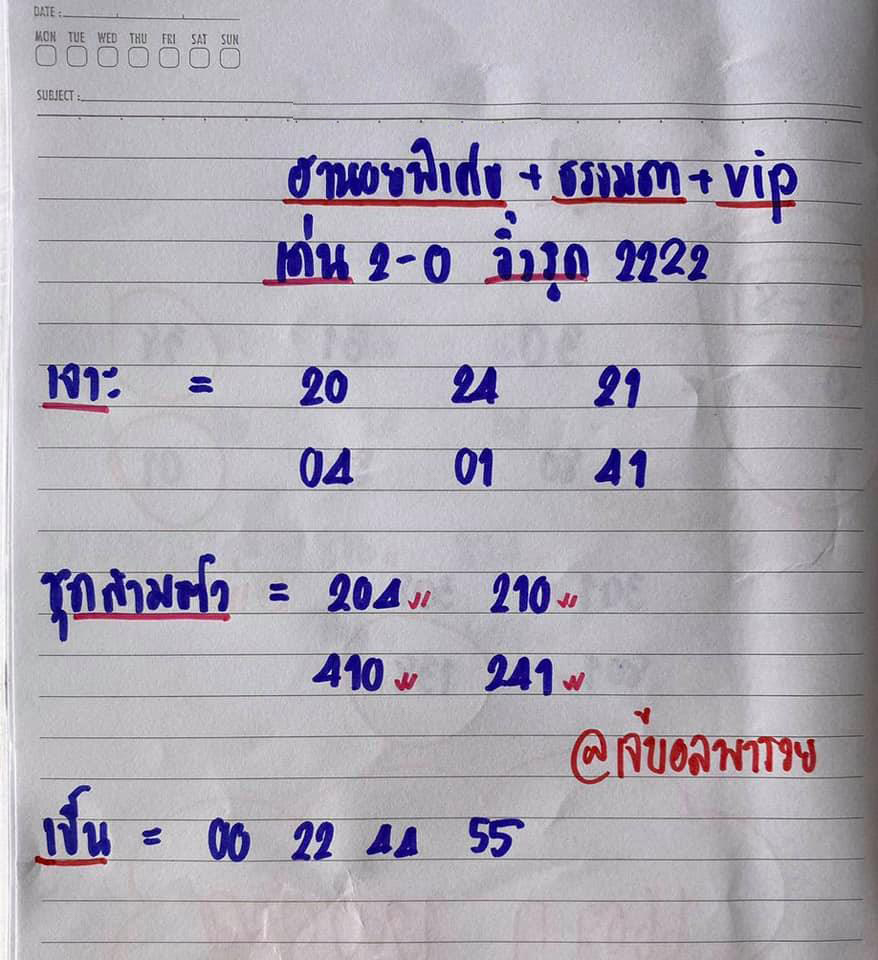 DATE :
MON TUE WED THU FRI SAT SUN
SUBJECT :
ฮานอยพิเศษ + ธรรมดา + vip
เด่น 2-0 วิ่งรูด 2222
เจาะ = 20 24 21
04 01 41
ชุดสามตัว = 204 210
410 241
@เจ๊บอลพารวย
เบิ้น = 00 22 44 55